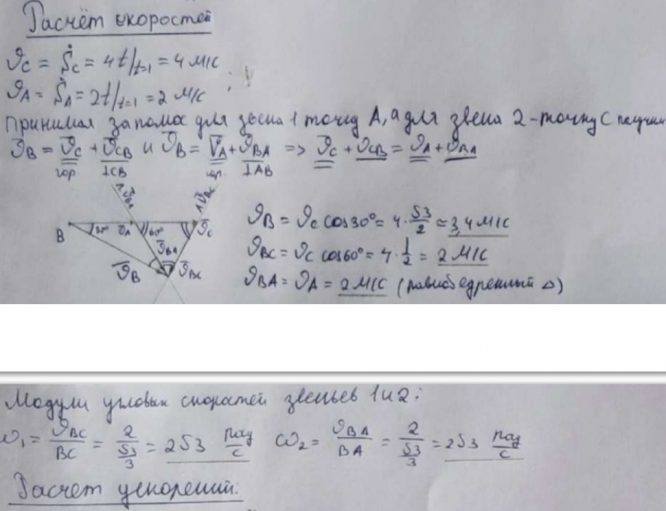 Расчёт скоростей
𝜗C = ṠC = 4t/t=1 = 4 м/с
𝜗A = ṠA = 2t/t=1 = 2 м/с
Принимая за полюс для звена 1 точку A, а для звена 2 - точку C получим
𝜗̄B = 𝜗̄C + 𝜗̄CB и 𝜗̄B = V̄A + 𝜗̄BA => 𝜗̄C + 𝜗̄CB = 𝜗̄A + 𝜗̄BA
гор. ⊥CB гор. ⊥AB
B 30° 𝜗̄A 60° 𝜗̄C
𝜗̄BA
𝜗̄B 𝜗̄BC
𝜗B = 𝜗C cos30° = 4 · √3/2 = 3,4 м/с
𝜗BC = 𝜗C cos60° = 4 · 1/2 = 2 м/с
𝜗BA = 𝜗A = 2 м/с (равнобедренный Δ)
Модули угловых скоростей звеньев 1 и 2:
ω1 = 𝜗BC/BC = 2/(√3/3) = 2√3 рад/с ω2 = 𝜗BA/BA = 2/(√3/3) = 2√3 рад/с
Расчет ускорений: